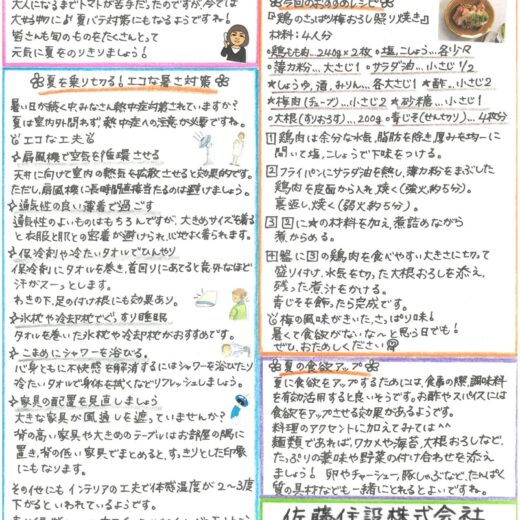 大人になるまでトマトが苦手だったのですが、今では
大好物に♪夏バテ対策にもなるようですね!
皆さんも旬のものをたくさんとって
元気に夏をのりきりましょう!
夏を乗り切る!エコな暑さ対策
暑い日が続く中、みなさん熱中症対策されていますか?
夏は室内外問わず、熱中症への注意が必要ですね。
エコな工夫
扇風機で空気を循環させる
天井に向けて室内の熱気を拡散させると効果的です。
ただし、扇風機に長時間直接当たるのは避けましょう。
通気性の良い薄着で過ごす
通気性のよいものはもちろんですが、大きめサイズを着る
と衣服と肌との密着が避けられ、心地よく着られます。
保冷剤や冷たいタオルでひんやり
保冷剤にタオルを巻き、首回りにあてると意外なほど
汗がスーッとします。
わきの下、足の付け根にも効果あり。
氷枕や冷却枕でぐっすり睡眠
タオルを巻いた氷枕や冷却枕がおすすめです。
こまめにシャワーを浴びる
心身ともに不快感を解消するにはシャワーを浴びたり
冷たいタオルで身体を拭くなどリフレッシュしましょう。
家具の配置を見直しましょう
大きな家具が風通しを遮っていませんか?
背の高い家具や大きめのテーブルはお部屋の隅に
置き、背の低い家具でまとめると、すっきりとした印象
にもなります。
その他にもインテリアの工夫で体感温度が2~3度
下がるといわれているようです。
今回のおすすめレシピ
『鶏のさっぱり梅おろし照り焼き』
材料:4人分
鶏もも肉…240g×2枚 塩、こしょう…各少々
薄力粉…大さじ1 サラダ油…小さじ1/2
★しょうゆ、酒、みりん…各大さじ1 ★酢…小さじ2
★梅肉(チューブ)…小さじ2 ★砂糖…小さじ1
大根(すりおろす)…200g 青じそ(せんぎり)…4枚分
1 鶏肉は余分な水気、脂肪を除き、厚みを均一に
開いて塩、こしょうで下味をつける。
2 フライパンにサラダ油を熱し、薄力粉をまぶした
鶏肉を皮面から入れ、焼く(強火約5分)。
裏返し、焼く(弱火約5分)。
3 2に★の材料を加え、煮詰めながら
煮からめる。
4 器に3の鶏肉を食べやすい大きさに切って
盛り付け、水気を切った大根おろしを添え、
残った煮汁をかける。
青じそを飾ったら完成です。
梅の風味がきいた、さっぱり味!
暑くて食欲がない、な~と思う日でも!
ぜひ、おためしください
夏の食欲アップ
夏に食欲をアップするためには、食事の際、調味料
を有効活用すると良いそうです。お酢やスパイスには
食欲をアップさせる効果があるようです。
料理のアクセントに加えてみては^^
麺類であれば、ワカメや海苔、大根おろしなど、
たっぷりの薬味や野菜の付け合わせを添え
ましょう!卵やチャーシュー、豚しゃぶなど、たんぱく
質の具材なども一緒にとれるとよいですね。
佐藤住設株式会社